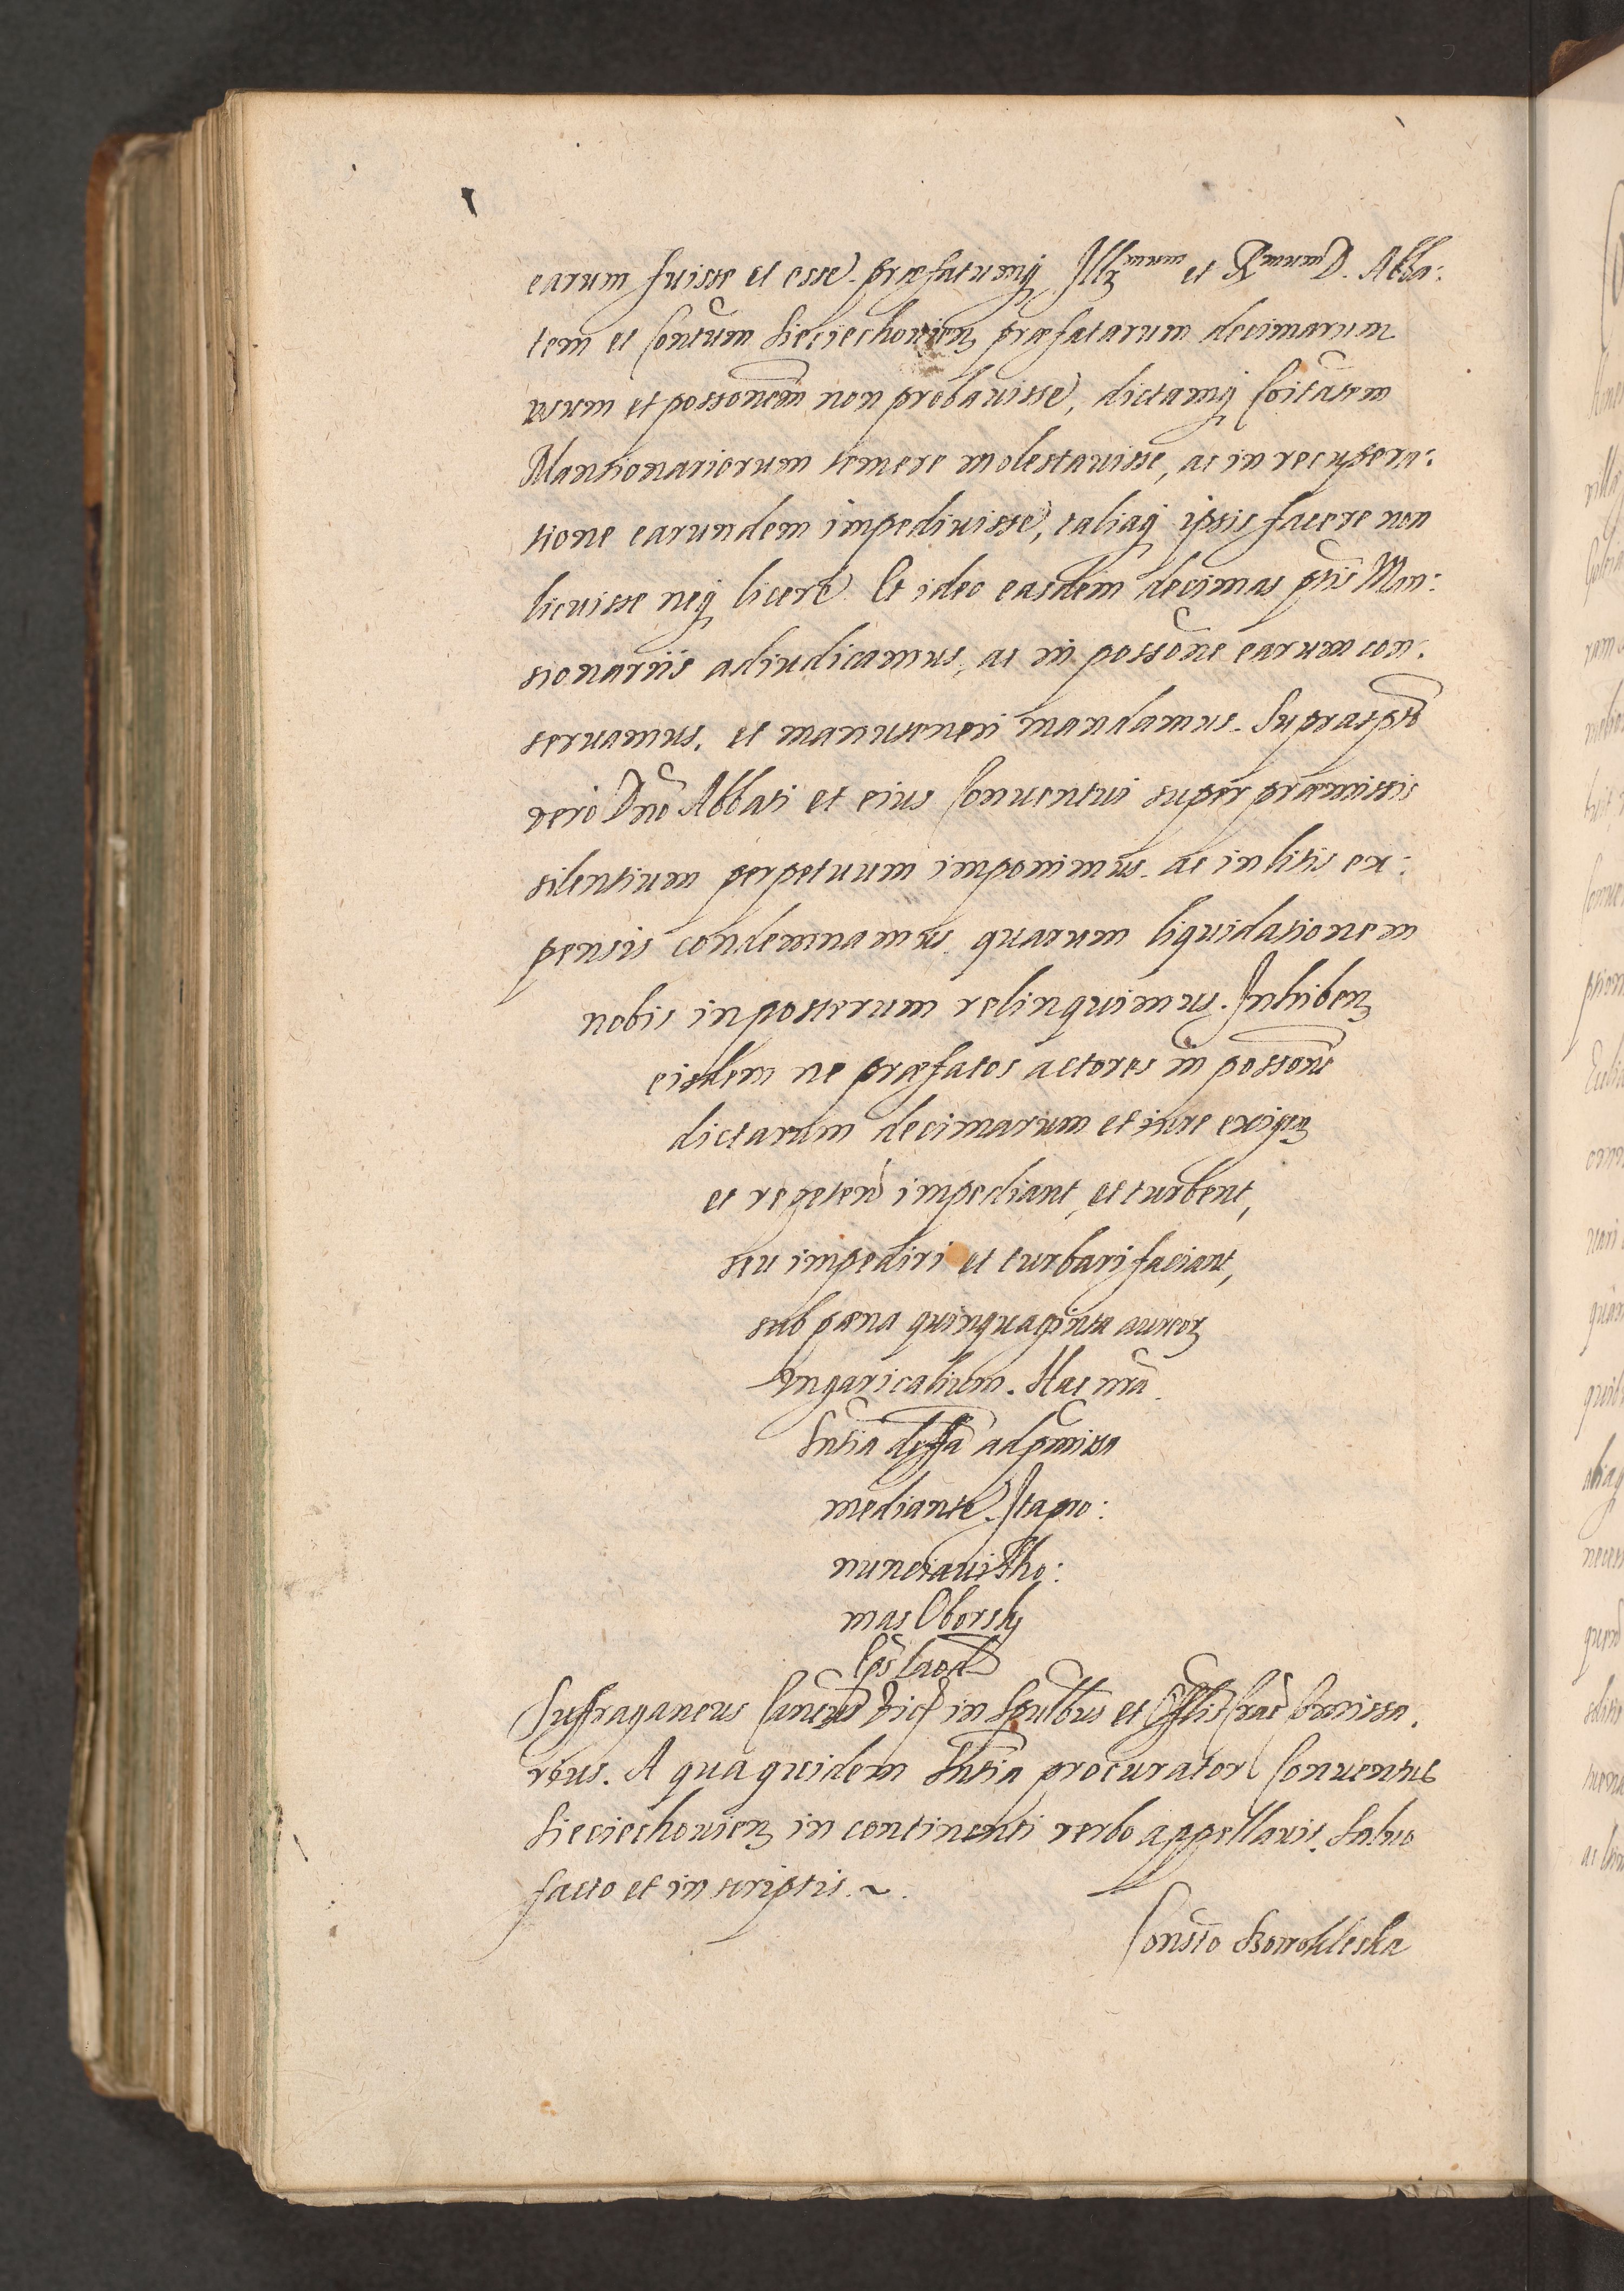 earum fuisse et esse. præfatumq́ Illrmum et Rmum D. Abba:
tem et Conũtum Sieciechouieñ præfatarum decimarum
usum et possonem̃ non probauisse, dictamq́ Coitãtem
Mansionariorum temere molestauisse, ac in recupera:
tione earundem impediuisse, taliaq́ ipsis facere non
licuisse neq́ licere. Et ideo easdem decimas pñtis Man:
sionariis adiudicamus, ac in possoñe earum con:
seruamus, et manuteneri mandamus. Suprascpto
vero Dño Abbati et eius Conuentui super præmissis
silentium perpetuum imponimus. ac in litis ex:
pensis condemnamus. quarum liquidationem
nobis in posterum relinquimus. Inhibeñ
eisdem ne præfatos actores in possoñe
dictarum decimarum et iure exigeñ
et repeteñ impediant, et turbent,
seu impediri et turbari faciant,
sub pæna quinquaginta aureor̃
Vngaricalium. Hac nrã
Sñtia deffã ad pmissa
mediante. Ita pro:
nunciauit Tho:
mas Oborsky
Eps̃ Laod
Suffraganeus Cracouieñ in Spũlbus et Offlis Gñalis Comissa
rius. A qua quidem Sñtia procurator Conuentus
Sieciechouieñ in continenti verbo appellauit. Saluo
facto et in scriptis. ~